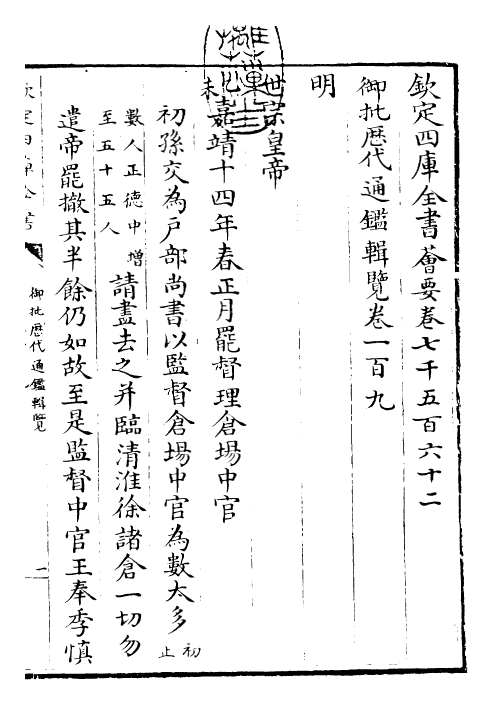 欽定四庫全書薈要卷七千五百六十二
御批歴代通鑑輯覽卷一百九
明
世宗皇帝
未嘉靖十四年春正月罷督理倉場中官
初孫交為户部尚書以監督倉場中官為數太多初止
數人正德中增至五十五人請盡去之并臨清淮徐諸倉一切勿
遣帝罷撤其半餘仍如故至是監督中官王奉季慎
欽定四庫全書
御批歴代通鑑輯覽
一